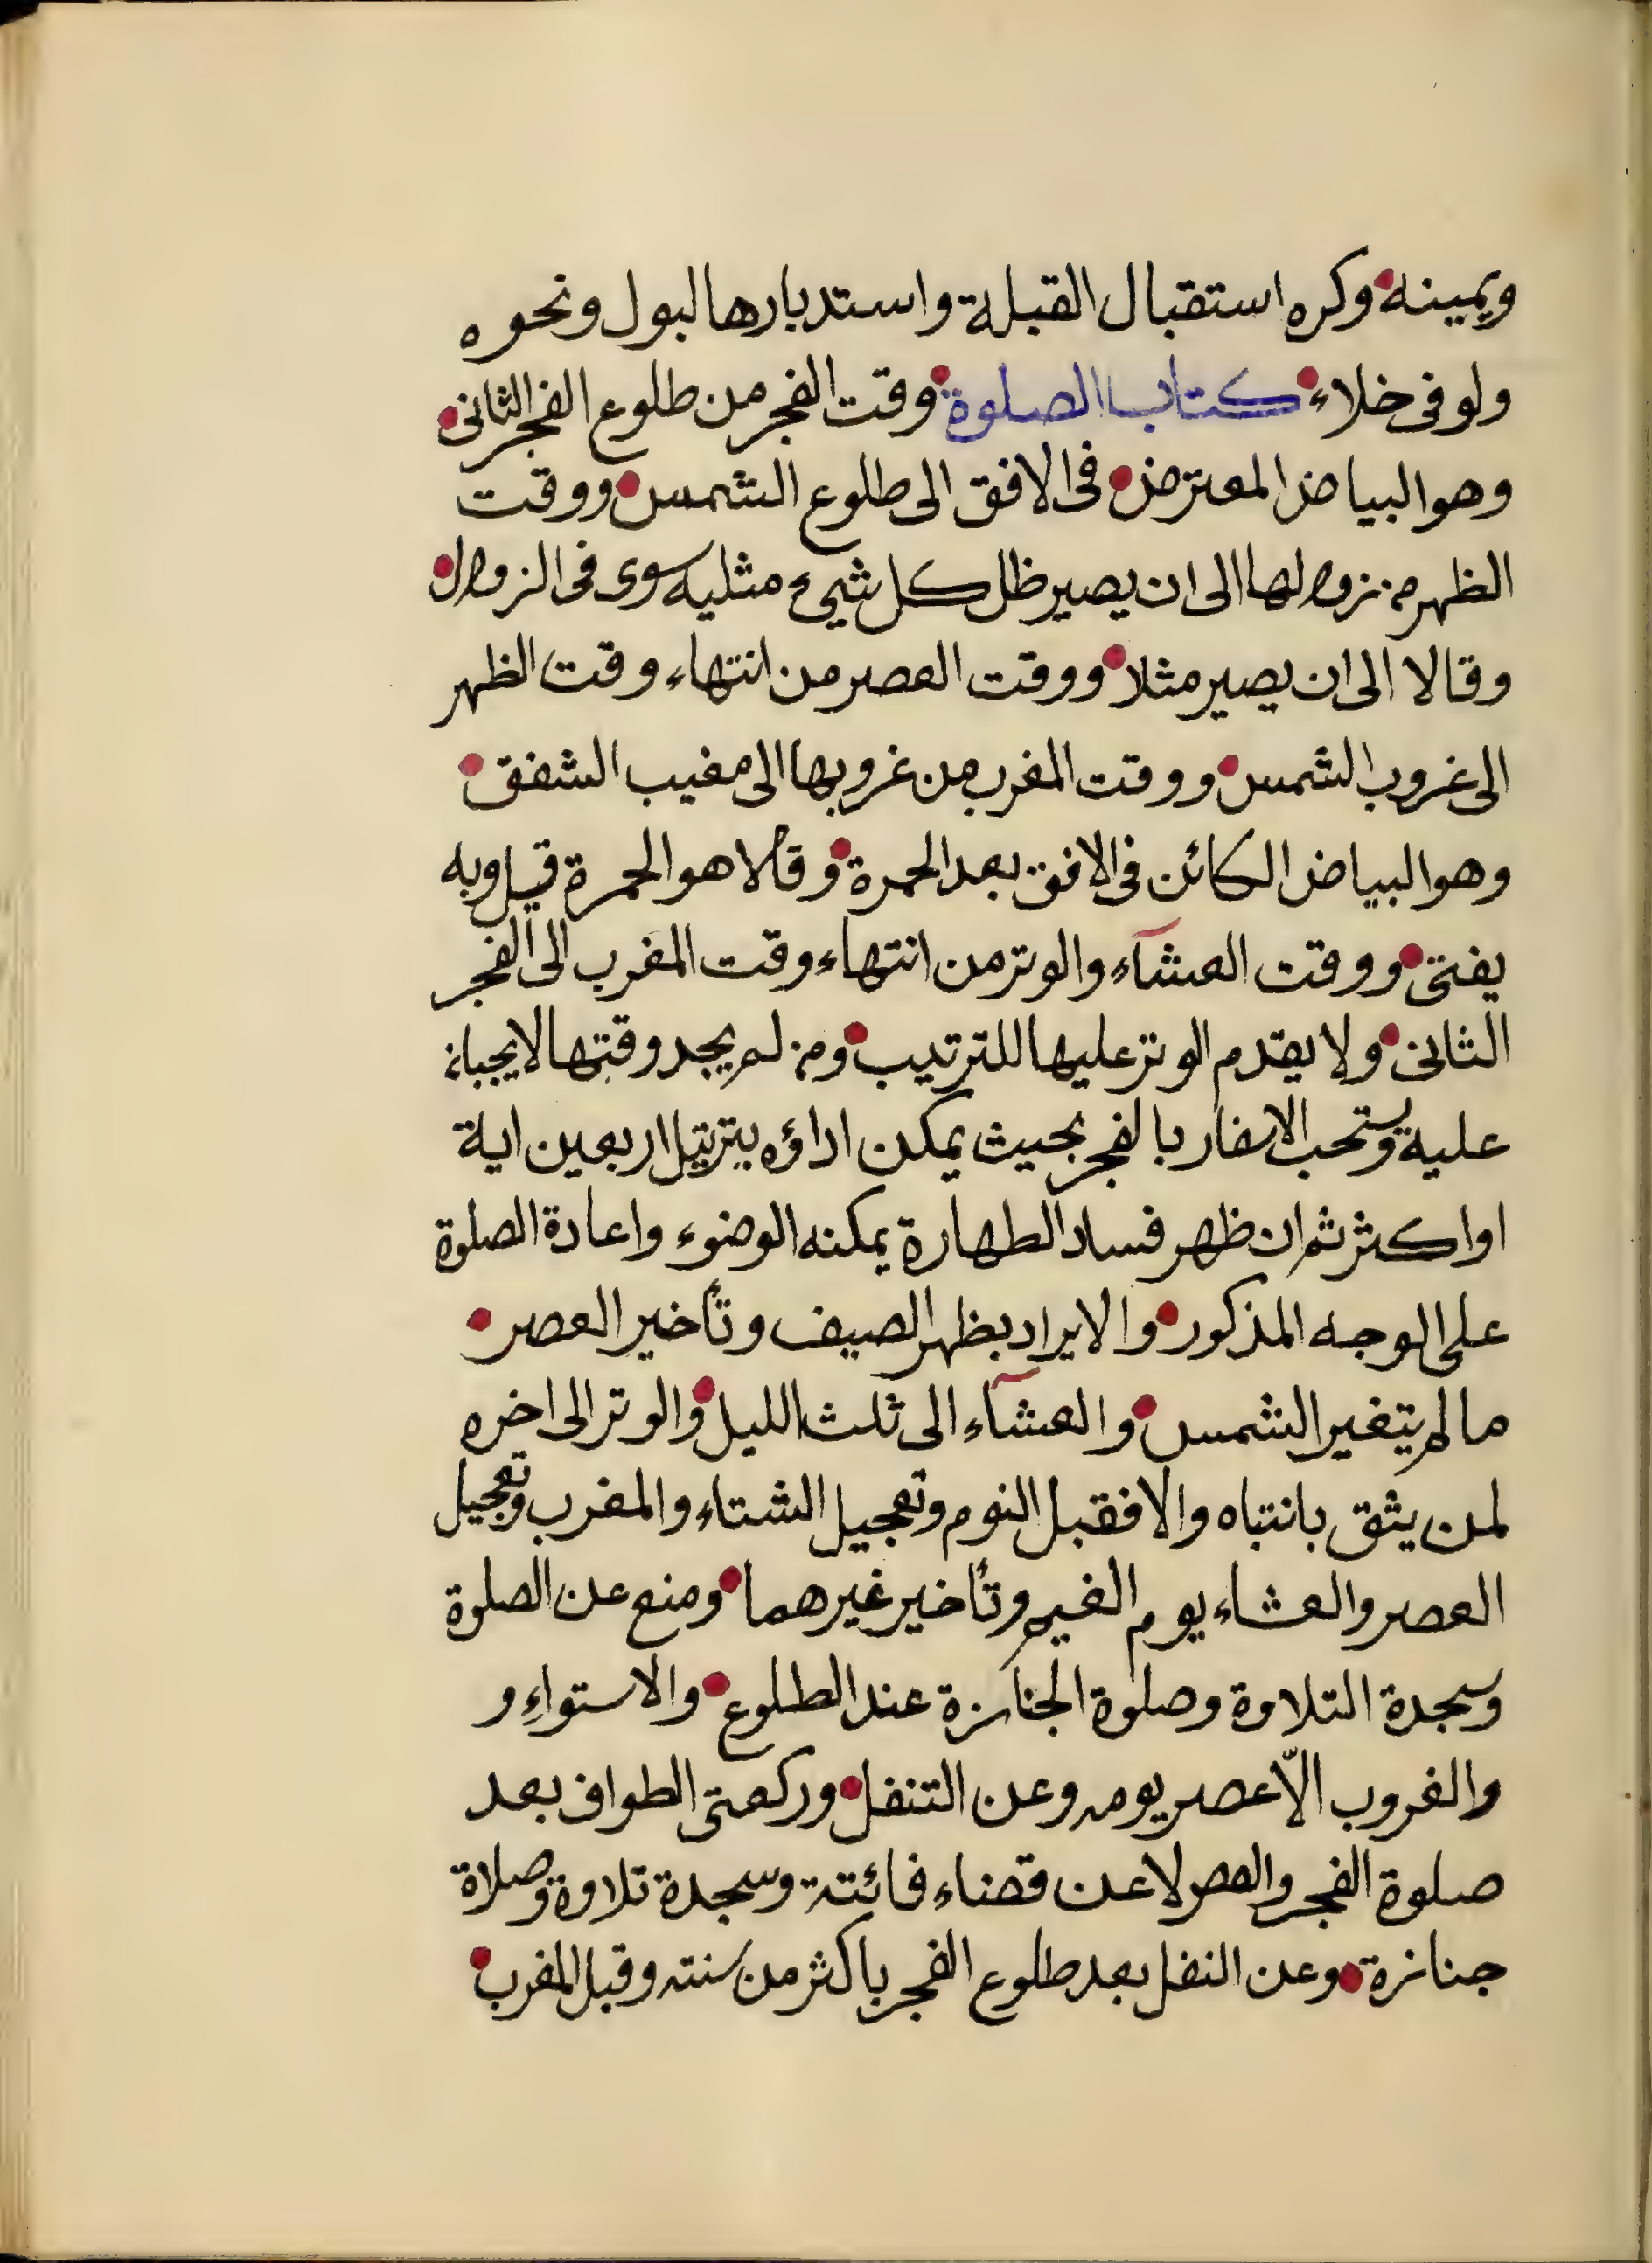 ويمينه وكره استقبال القبلة واستدبارها لبول ونحوه
ولو فى خلاء كتاب الصلوة وقت الفجر من طلوع الفجر الثانى
وهو البياض المعترض فى الافق الى طلوع الشمس ووقت
الظهر من زوالها الى ان يصير ظل كل شيء مثليه سوى فى الزوال
وقالا الى ان يصير مثلا ووقت العصر من انتهاء وقت الظهر
الى غروب الشمس ووقت المغرب من غروبها الى مغيب الشفق
وهو البياض الكائن فى الافق بعد الحمرة وقالا هو الحمرة قيل وبه
يفتى ووقت العشآء والوتر من انتهاء وقت المغرب الى الفجر
الثانى ولا يقدم الوتر عليها للترتيب ومن لم يجد وقتها لا يجبان
عليه ويستحب الاسفار بالفجر بحيث يمكن اداؤه بترتيل اربعين اية
او اكثر ثم ان ظهر فساد الطهارة يمكنه الوضوء واعادة الصلوة
على الوجه المذكور والايراد بظهر الصيف وتأخير العصر
ما لم يتغير الشمس والعشآء الى ثلث الليل والوتر الى اخره
لمن يثق بانتباه والا فقبل النوم وتعجيل الشتاء والمغرب وتعجيل
العصر والعشاء يوم الغيم وتأخير غيرهما ومنع عن الصلوة
وسجدة التلاوة وصلوة الجنازة عند الطلوع والاستواء و
والغروب الّا عصر يومه وعن التنفل وركعتى الطواف بعد
صلوة الفجر والعصر لا عن قضاء فائتة وسجدة تلاوة وصلاة
جنازة وعن النفل بعد طلوع الفجر باكثر من سنته وقبل المغرب